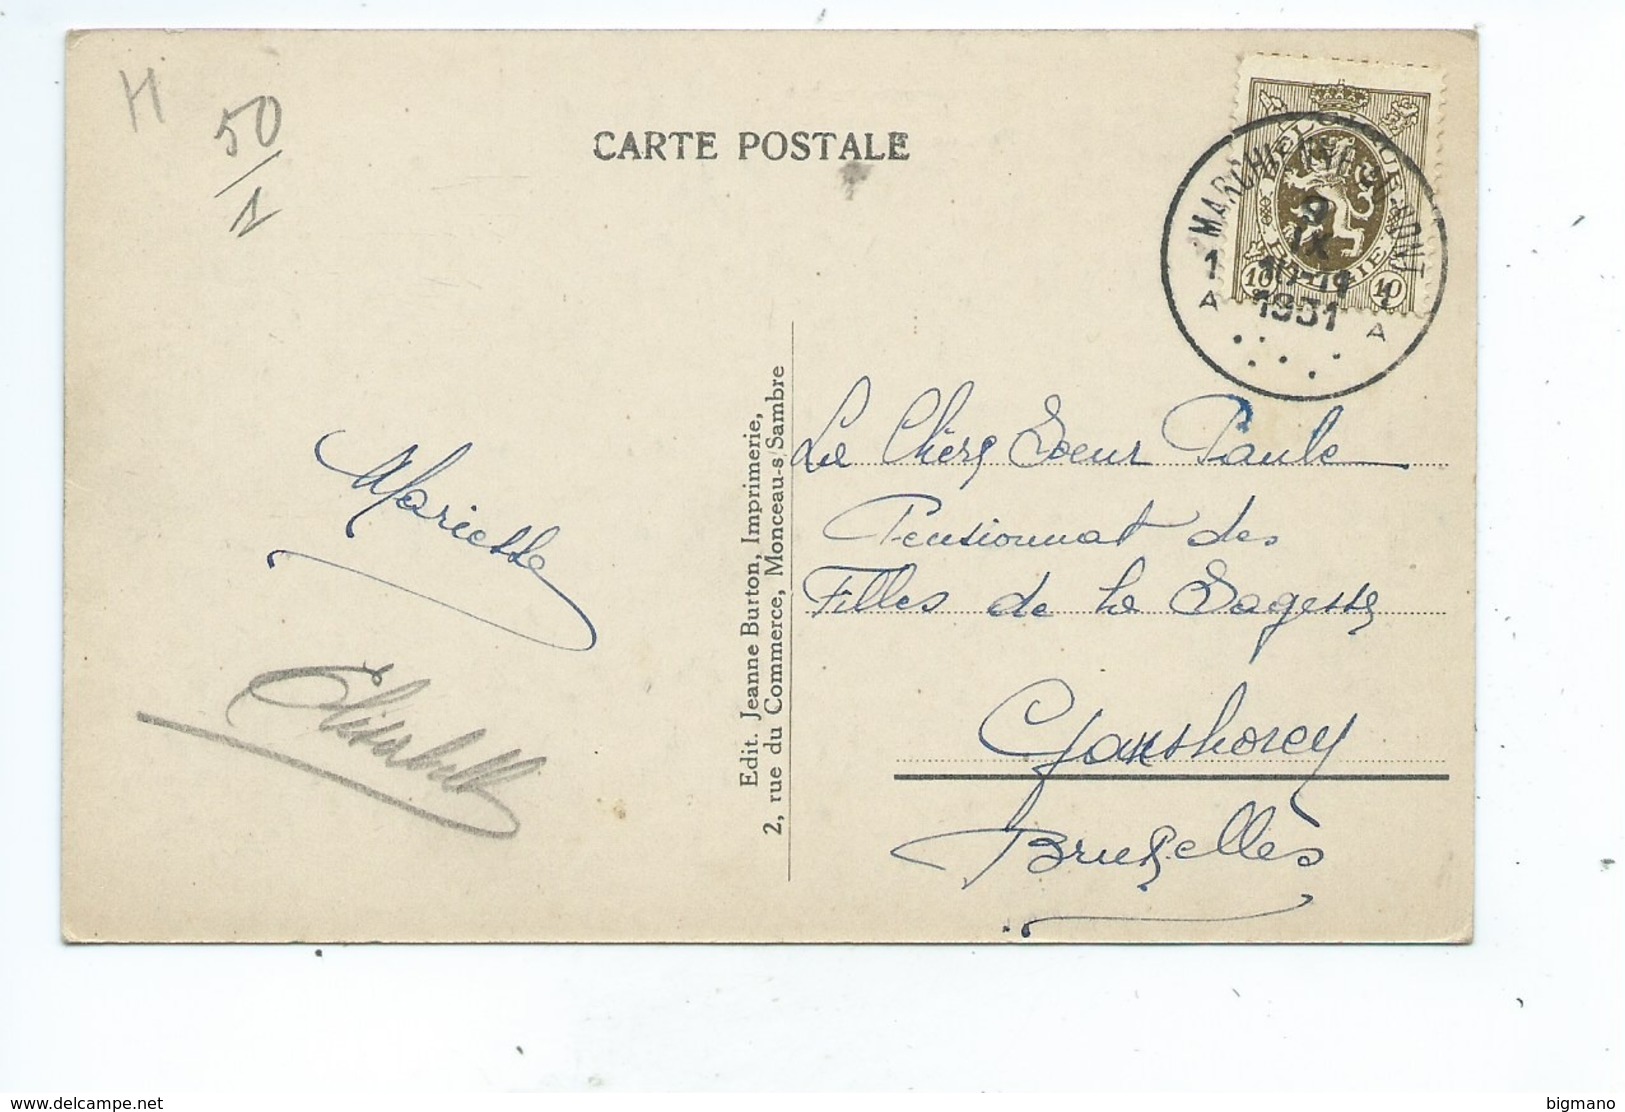 H
50
1
CARTE POSTALE
BELGIQUE
BELGIE
10
10
MARCHIENNE-AU-PONT
9
IX
1931
1
1
A
A
Mariette
Élisabeth
Edit. Jeanne Burton, Imprimerie,
2, rue du Commerce, Monceau-s/Sambre
La Chère Soeur Paule
Pensionnat des
Filles de la Sagesse
Ganshorey
Bruxelles
delcampe.net
bigmano